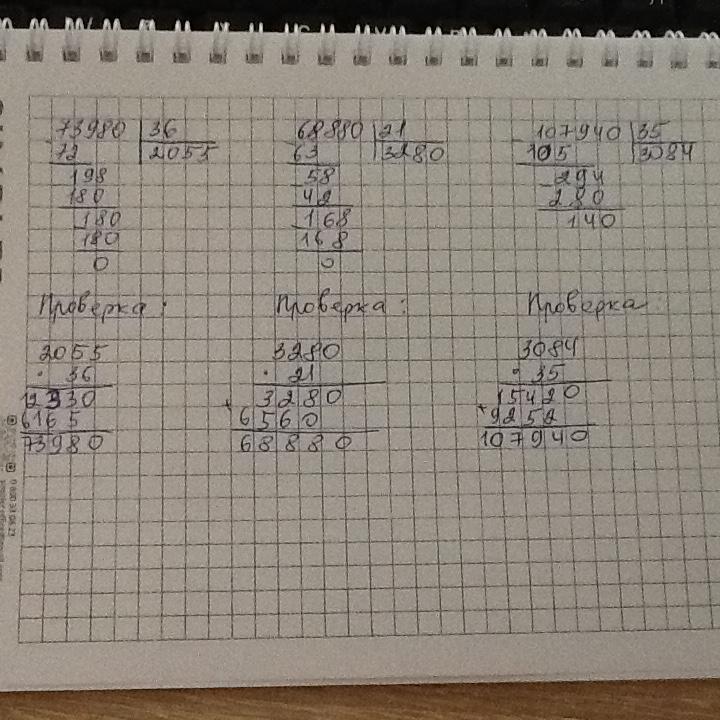 73980 36
72 2055
198
180
180
180
0
68880 21
63 3280
58
42
168
168
0
107940 35
105 3084
294
280
140
Проверка:
2055
· 36
12330
6165
73980
Проверка:
3280
· 21
+ 3280
6560
68880
Проверка:
3084
· 35
+ 15420
9252
107940